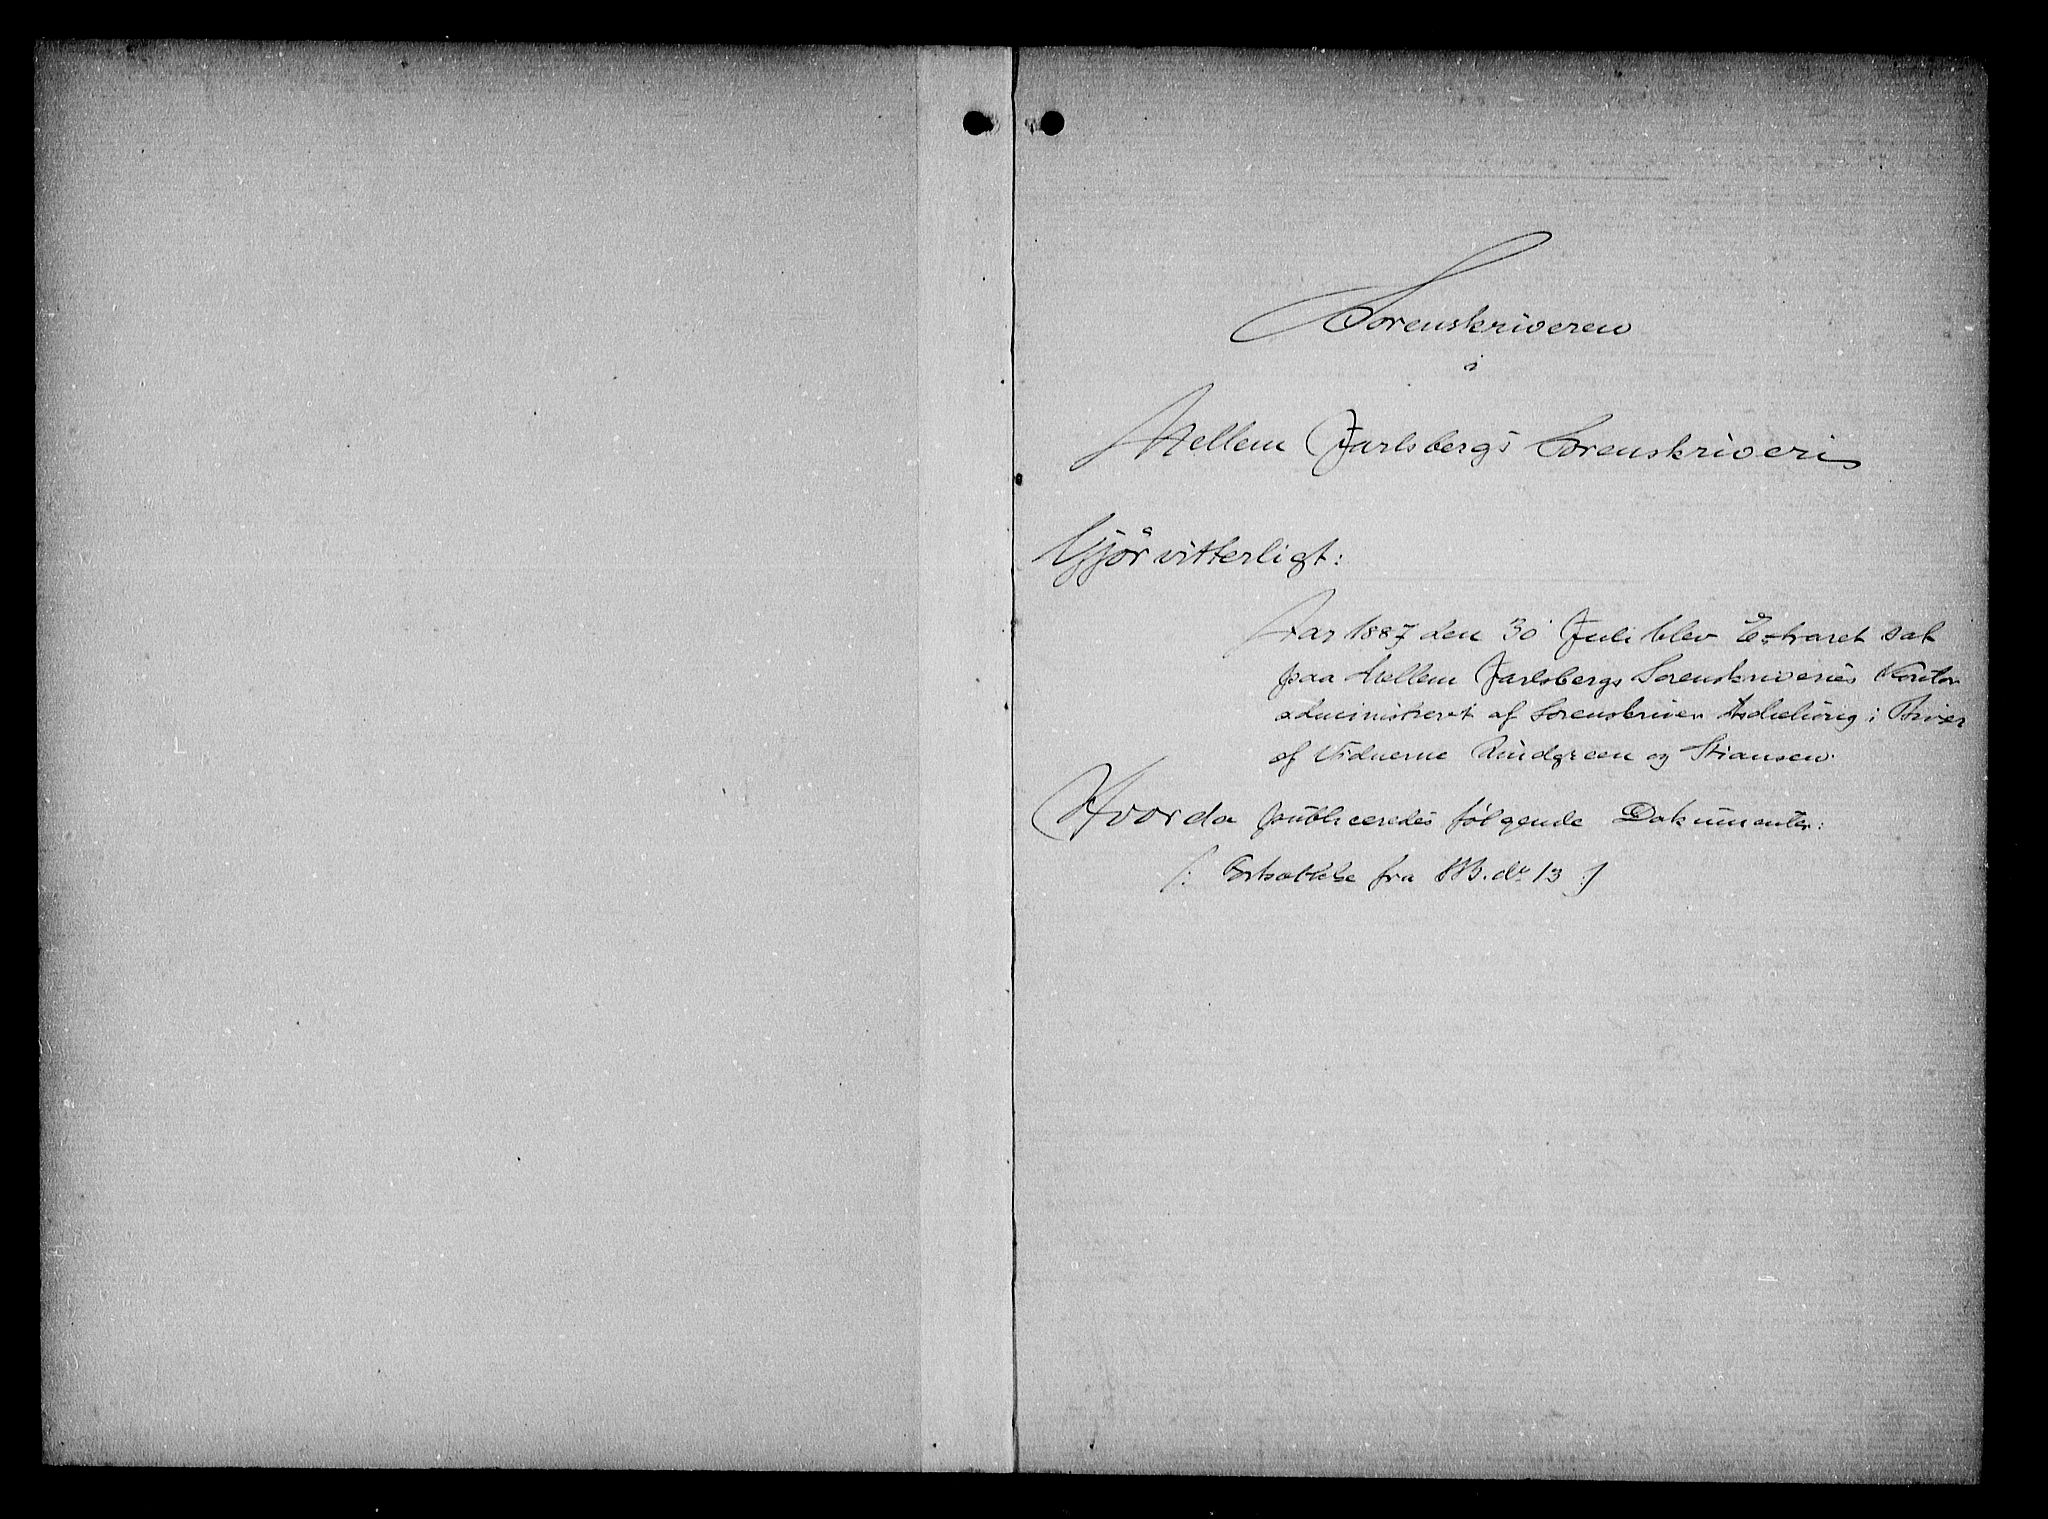 Sorenskriveren
i
Mellem Jarlsbergs Sorenskriveri
Gjör vitterligt:
Aar 1887 den 30 Juli blev Extraret sat
paa Mellem Jarlsbergs Sorenskriveries Kontor
administreret af Sorenskriver i
af Vidnerne Lindgreen og Stiansen.
Hvorda publiceredes følgende Dokumenter:
/: Fortsættelse fra PB. 13 :/